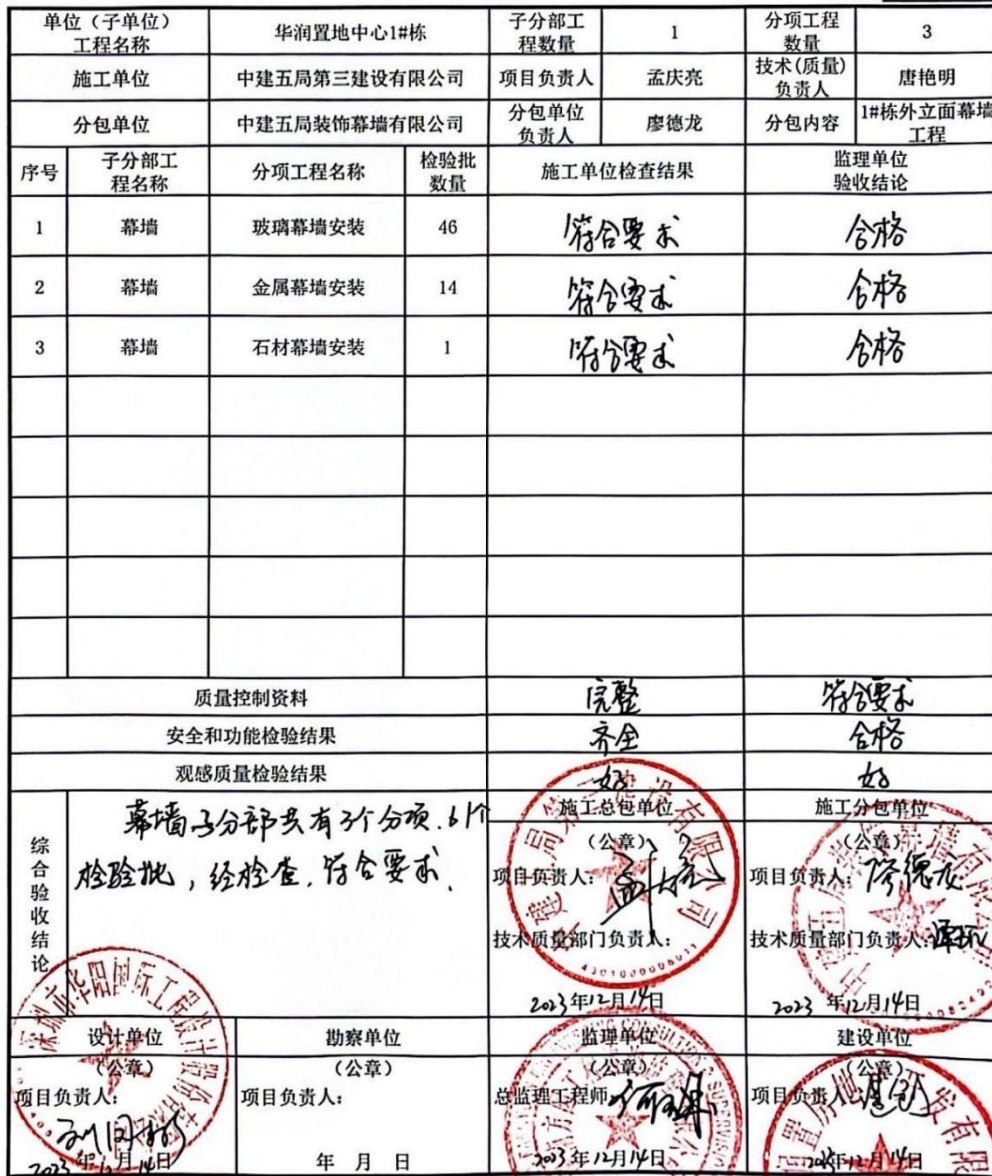 单位（子单位）工程名称 华润置地中心1#栋 子分部工程数量 1 分项工程数量 3
施工单位 中建五局第三建设有限公司 项目负责人 孟庆亮 技术(质量)负责人 唐艳明
分包单位 中建五局装饰幕墙有限公司 分包单位负责人 廖德龙 分包内容 1#栋外立面幕墙工程
序号 子分部工程名称 分项工程名称 检验批数量 施工单位检查结果 监理单位验收结论
1 幕墙 玻璃幕墙安装 46 符合要求 合格
2 幕墙 金属幕墙安装 14 符合要求 合格
3 幕墙 石材幕墙安装 1 符合要求 合格
质量控制资料 完整 符合要求
安全和功能检验结果 齐全 合格
观感质量检验结果 好 好
综合验收结论
幕墙子分部共有3个分项.61个
检验批，经检查.符合要求.
施工总包单位
（公章）
项目负责人：
技术质量部门负责人：
2023年12月14日
施工分包单位
（公章）
项目负责人：廖德龙
技术质量部门负责人：
2023年12月14日
设计单位
（公章）
项目负责人：
2023年12月14日
深圳市华阳国际工程设计股份有限公司
勘察单位
（公章）
项目负责人：
年 月 日
监理单位
（公章）
总监理工程师
2023年12月14日
建设单位
（公章）
项目负责人
2023年12月14日